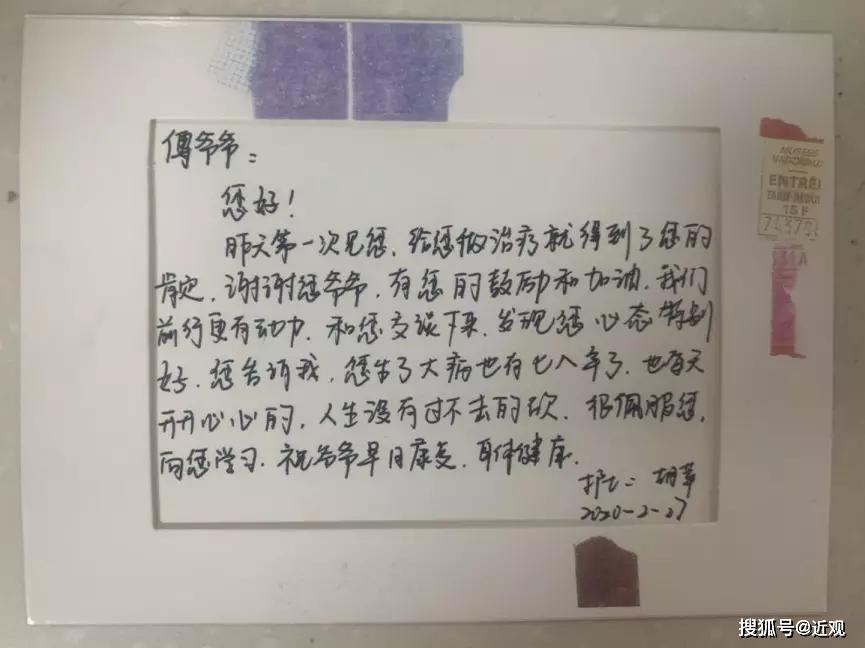 傅爷爷：
您好！
昨天第一次见您，给您做治疗就得到了您的
肯定，谢谢您爷爷，有您的鼓励和加油，我们
前行更有动力，和您交谈下来，发现您心态特别
好，您告诉我，您生了大病也有七八年了，也每天
开开心心的，人生没有过不去的坎，很佩服您，
向您学习，祝爷爷早日康复，身体健康.
护士：胡
2020-2-27
MUSEES
NATIONAUX
ENTREE
TARIF REDUIT
15 F
搜狐号@近观